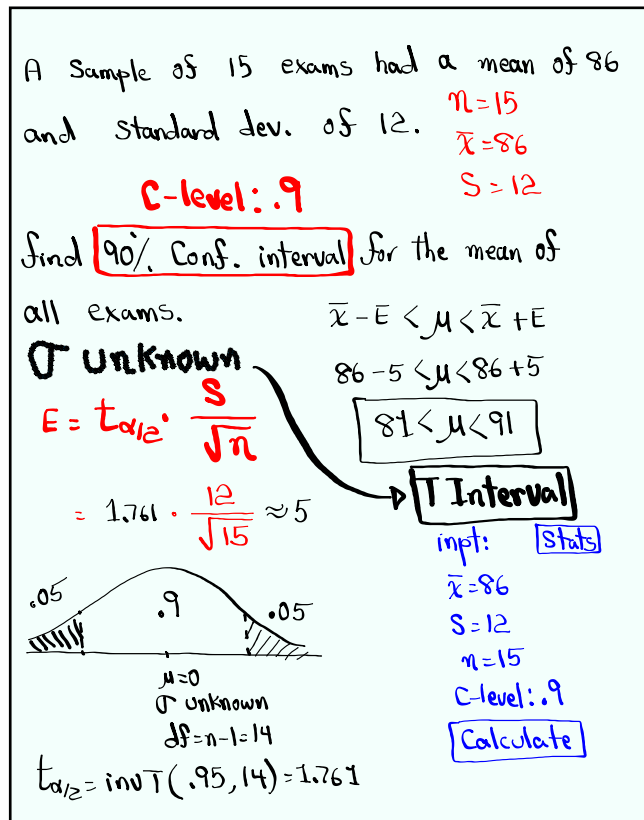 A Sample of 15 exams had a mean of 86
and standard dev. of 12.
n=15
x̄=86
S=12
C-level: .9
find 90% Conf. interval for the mean of
all exams.
σ unknown
E = t_{α/2} · S/√n
= 1.761 · 12/√15 ≈ 5
x̄ - E < μ < x̄ + E
86-5 < μ < 86+5
81 < μ < 91
T Interval
inpt: Stats
x̄=86
S=12
n=15
C-level: .9
Calculate
.05 .9 .05
μ=0
σ unknown
df=n-1=14
t_{α/2} = invT(.95, 14) = 1.761